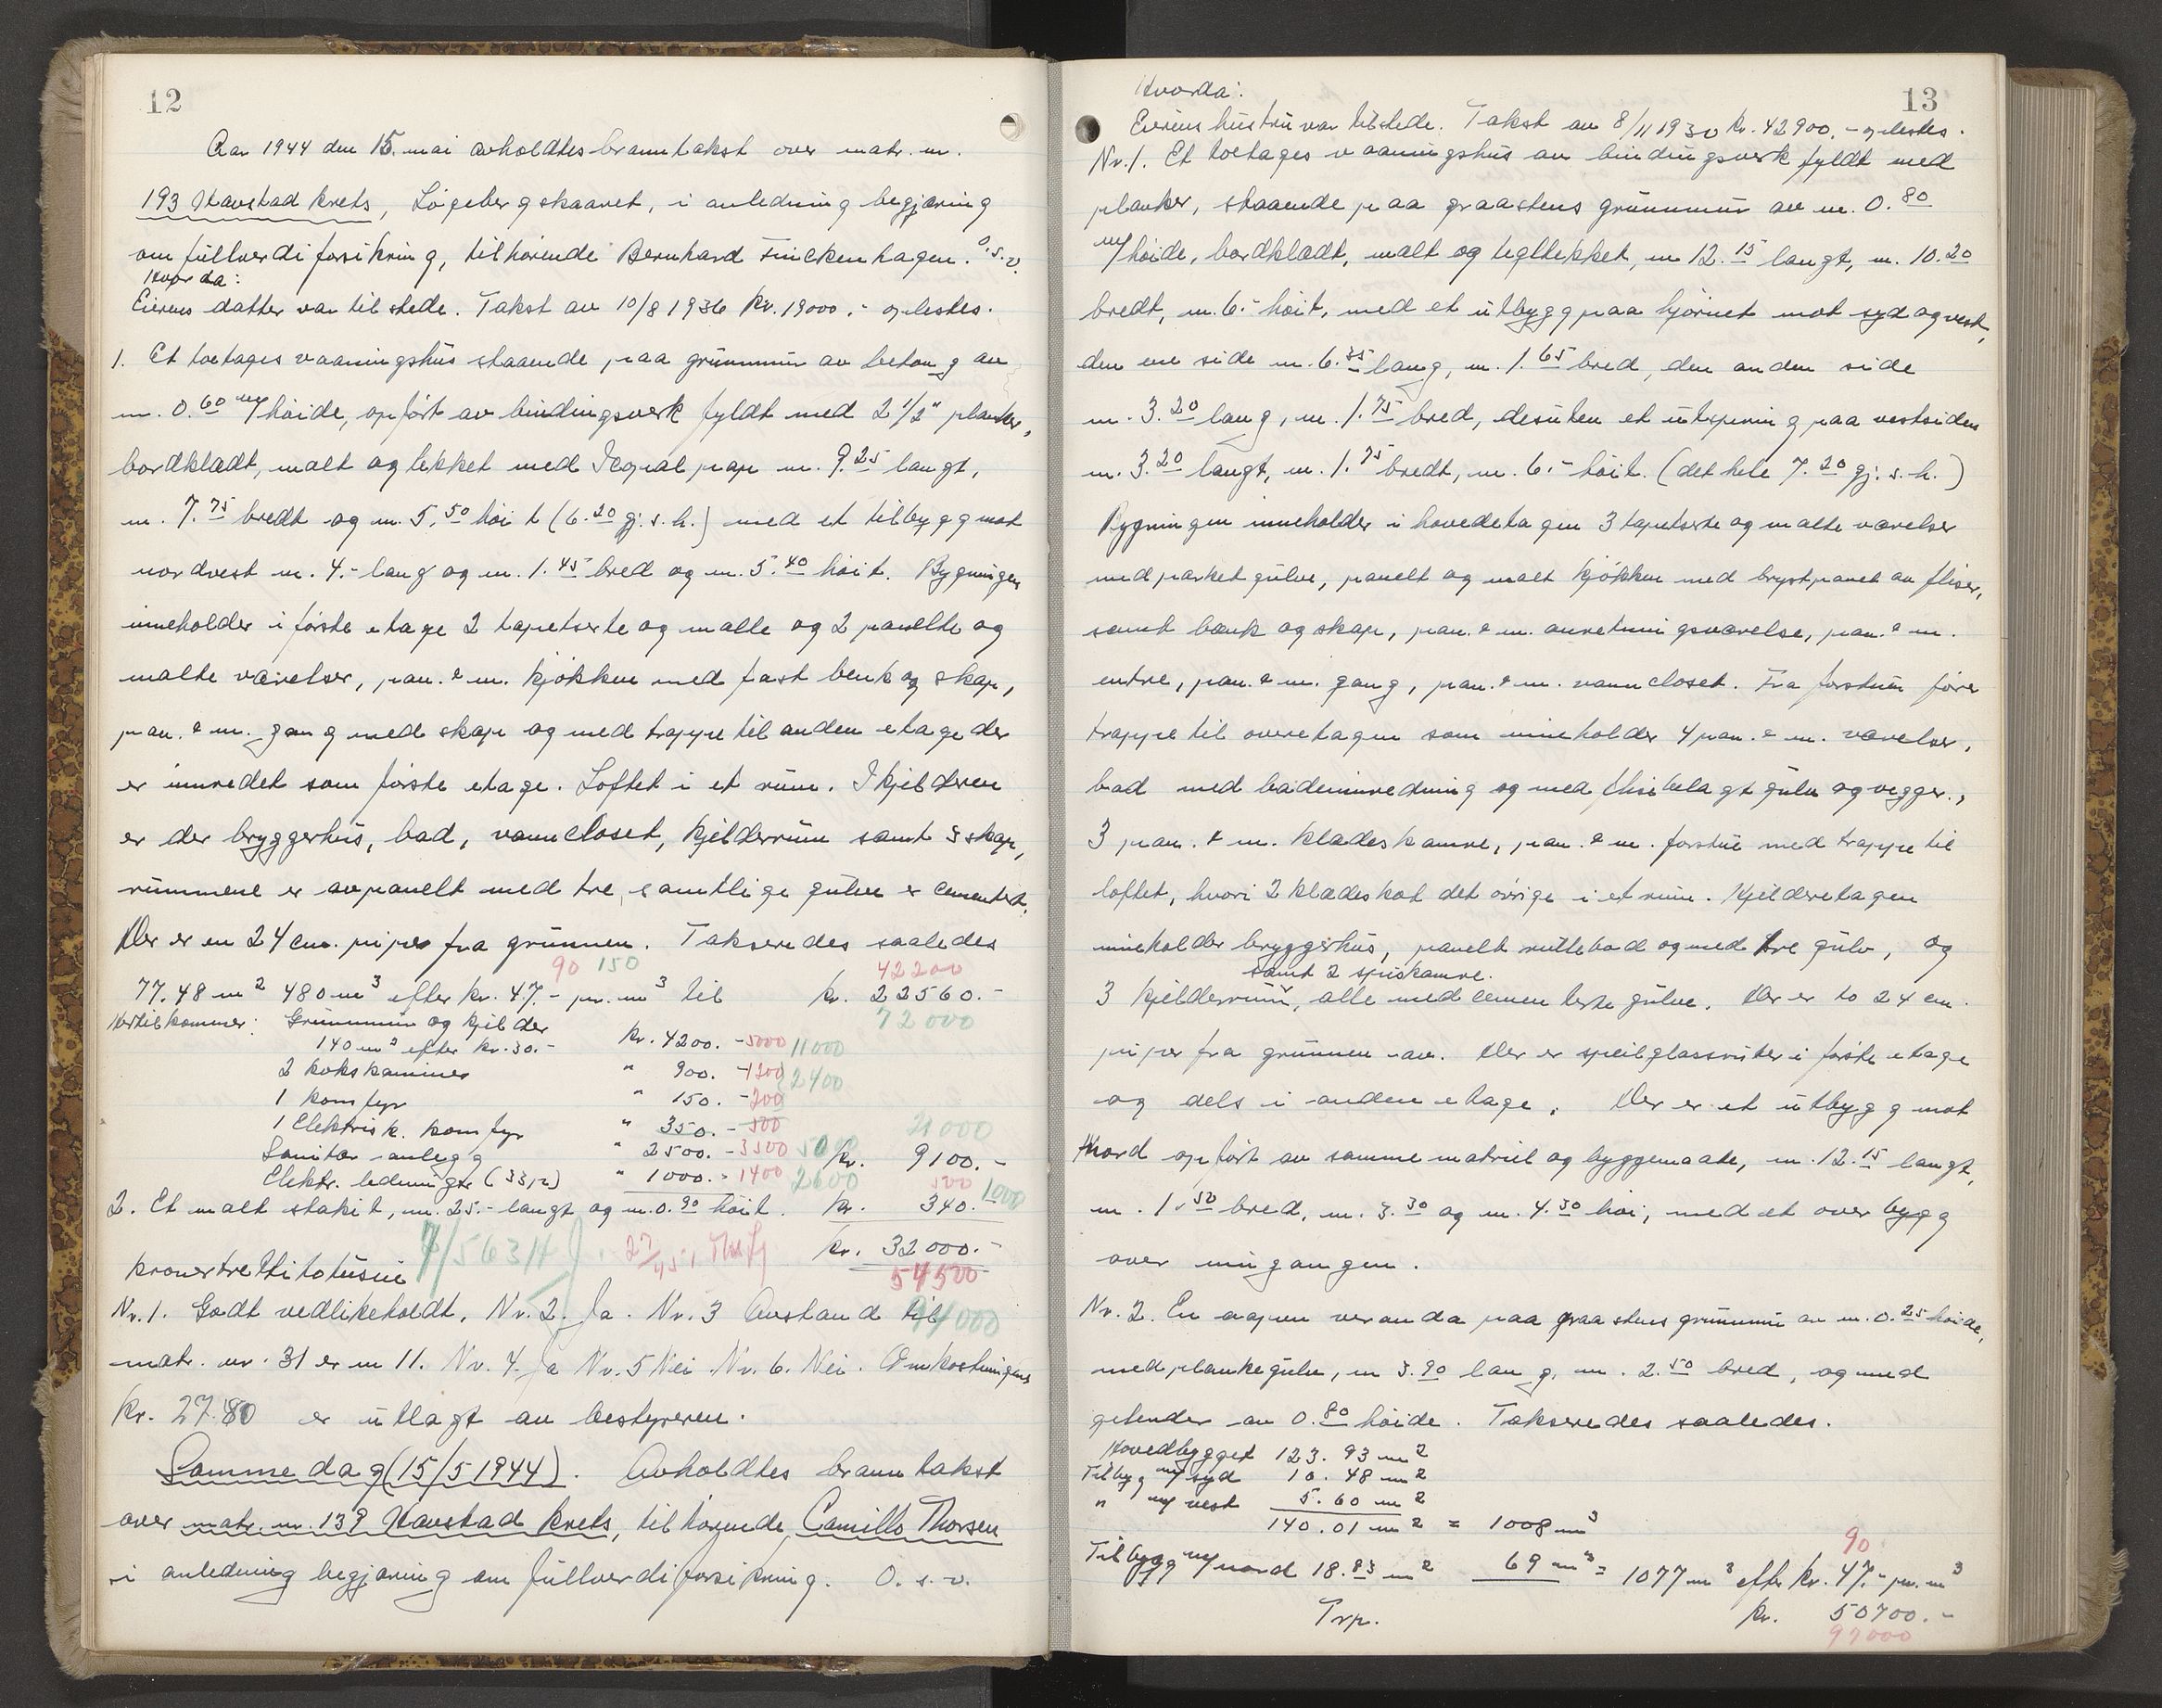 12
Aar 1944 den 15. mai avholdtes branntakst over matr. nr.
193 Havstad krets, Løgebergskaaret, i anledning begjæring
om fullverdiforsikring, tilhørende Bernhard Finckenhagen. O.s.v.
Hvorda:
Eierens datter var tilstede. Takst av 10/8 1936 kr. 19000.- oplestes.
1. Et toetages vaaningshus staaende paa grunnmur av betong av
m. 0.60 høide, opført av bindingsverk fyldt med 2 1/2" planker,
bordklædt, malt og tekket med Icopalpap m. 9.25 langt,
m. 7.75 bredt og m. 5.50 høit (6.20 gj.s.h.) med et tilbygg mot
nordvest m. 4.- lang og m. 1.45 bred og m. 5.40 høit. Bygningen
inneholder i første etage 2 tapetserte og malte og 2 panelte og
malte værelser, pan. & m. kjøkken med fast benk og skap,
pan. & m. gang med skap og med trappe til anden etage der
er innredet som første etage. Loftet i et rum. I kjelderen
er der bryggerhus, bad, vanncloset, kjelderrum samt 3 skap,
rummene er avpanelt med tre, samtlige gulve er cementert.
Der er en 24 cm. pipe fra grunnen. Takseredes saaledes
90 150 42200
77.48 m2 480 m3 efter kr. 47.- pr. m3 til kr. 22560.-
72000
Hertil kommer: Grunnmur og kjelder
140 m2 efter kr. 30.- kr. 4200.- 5000 11000
2 kokskaminer " 900.- 1200 2400
1 komfyr " 150.- 200
1 Elektrisk. komfyr " 350.- 500 21000
Sanitær anlegg " 2500.- 3500 5000 kr. 9100.-
Elektr. ledninger (33 p) " 1000.- 1400 2600 500 1000
2. Et malt stakit, m. 25.- langt og m. 0.90 høit. kr. 340.-
kr. 32000.-
54500
kronertrettitotusen
94000
Nr. 1. Godt vedlikeholdt. Nr. 2. Ja. Nr. 3 Avstand til
matr. nr. 31 er m 11. Nr. 4. Ja Nr. 5 Nei. Nr. 6. Nei. Omkostningene
kr. 27.80 er utlagt av bestyreren.
Samme dag (15/5 1944). Avholdtes branntakst
over matr. nr. 139 Havstad krets, tilhørende Camillo Thorsen
i anledning begjæring om fullverdiforsikring. O.s.v.
13
Hvorda:
Eierens hustru var tilstede. Takst av 8/11 1930 kr. 42900.- oplestes.
Nr. 1. Et toetages vaaningshus av bindingsverk fyldt med
planker, staaende paa graastens grunnmur av m. 0.80
høide, bordklædt, malt og tegltekket, m 12.15 langt, m. 10.20
bredt, m. 6.- høit, med et utbygg paa hjørnet mot syd og vest,
den ene side m. 6.35 lang, m. 1.65 bred, den anden side
m. 3.20 lang, m. 1.75 bred, desuten et utspring paa vestsiden
m. 3.20 langt, m. 1.75 bredt, m. 6.- høit. (det hele 7.20 gj.s.h.)
Bygningen inneholder i hovedetagen 3 tapetserte og malte værelser
med parketgulve, panelt og malt kjøkken med brystpanel av fliser,
samt bænk og skap, pan. & m. anretningsværelse, pan. & m.
entre, pan. & m. gang, pan. & m. vanncloset. Fra forstuen fører
trappe til overetagen som inneholder 4 pan. & m. værelser,
bad med badeinnredning og med flisbelagt gulv og vegger,
3 pan. & m. klædeskamre, pan. & m. forstue med trappe til
loftet, hvori 2 klædeskot det øvrige i et rum. Kjelderetagen
inneholder bryggerhus, panelt rullebod og med tre gulv, og
samt 2 spiskamre.
3 kjelderrum, alle med cementerte gulve. Der er to 24 cm.
piper fra grunnen av. Der er speilglassruter i første etage
og dels i anden etage. Der er et utbygg mot
Nord opført av samme matriel og byggemaate, m. 12.15 langt,
m. 1.50 bred, m. 3.30 og m. 4.30 høi, med et overbygg
over inngangen.
Nr. 2. En aapen veranda paa graastens grunnmur av m. 0.25 høide,
med plankegulv, m 3.90 lang, m. 2.50 bred, og med
gelender av 0.80 høide. Takseredes saaledes.
Hovedbygget 123.93 m2
Tilbygg syd 10.48 m2
" vest 5.60 m2
140.01 m2 = 1008 m3
90
Tilbygg nord 18.83 m2 69 m3 = 1077 m3 efter kr. 47.- pr. m3
Trp. kr. 50700.-
97000